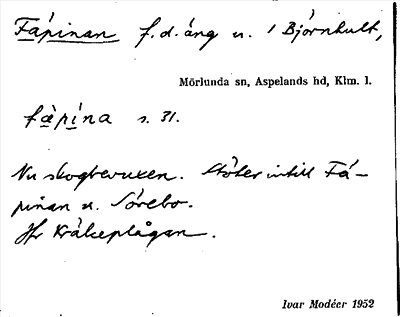 Fäpinan f.d. äng u. 1 Björnhult,
Mörlunda sn, Aspelands hd, Klm. l.
fæ̀pína s. 31.
Nu skogbevuxen. Stöter intill Fä-
pinan u. Sörebo.
Jfr Kräkeplågan.
Ivar Modéer 1952